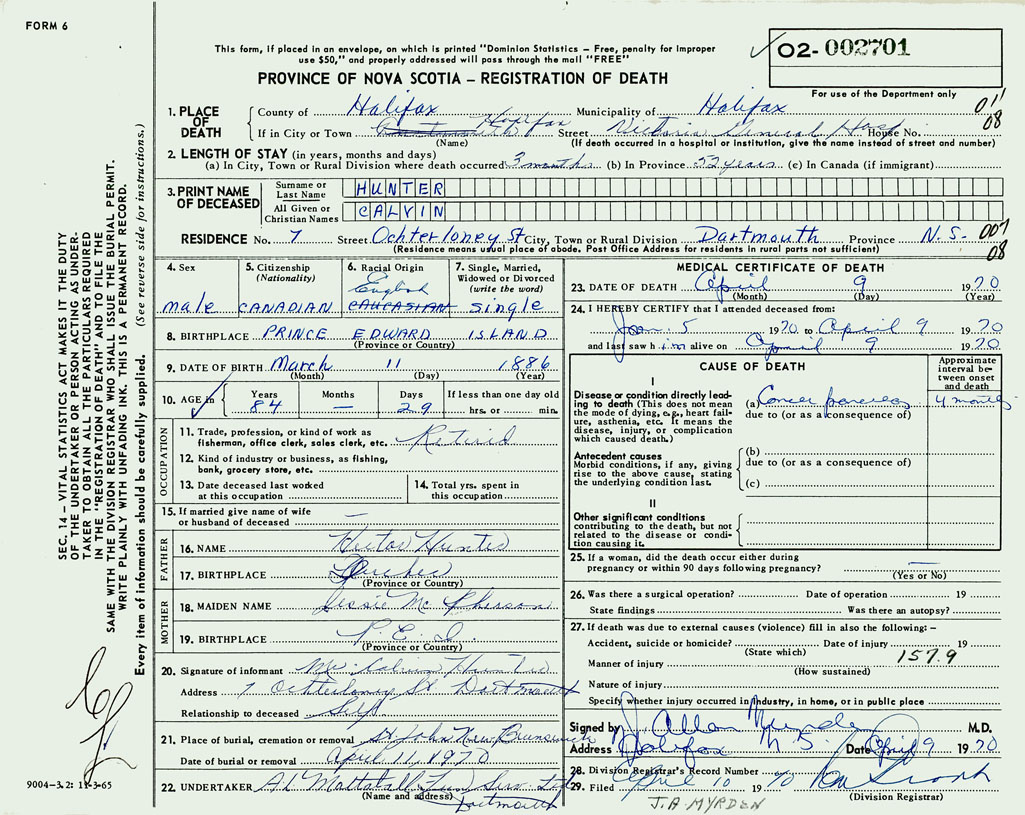 FORM 6
This form, if placed in an envelope, on which is printed "Dominion Statistics – Free, penalty for improper
use $50," and properly addressed will pass through the mail "FREE"
PROVINCE OF NOVA SCOTIA – REGISTRATION OF DEATH
O2- 002701
For use of the Department only
011
08
1. PLACE OF DEATH
County of Halifax Municipality of Halifax
If in City or Town Dartmouth Halifax Street Victoria General Hosp House No.
(Name) (If death occurred in a hospital or institution, give the name instead of street and number)
2. LENGTH OF STAY (in years, months and days)
(a) In City, Town or Rural Division where death occurred 3 months (b) In Province 52 years (c) In Canada (if immigrant)
3. PRINT NAME OF DECEASED
Surname or Last Name HUNTER
All Given or Christian Names CALVIN
RESIDENCE No. 7 Street Ochterloney St City, Town or Rural Division Dartmouth Province N.S. 007
08
(Residence means usual place of abode, Post Office Address for residents in rural parts not sufficient)
4. Sex
male
5. Citizenship (Nationality)
CANADIAN
6. Racial Origin
English
CAUCASIAN
7. Single, Married, Widowed or Divorced (write the word)
single
8. BIRTHPLACE PRINCE EDWARD ISLAND
(Province or Country)
9. DATE OF BIRTH March 11 1886
(Month) (Day) (Year)
10. AGE in Years 84 Months — Days 29 If less than one day old hrs. or min.
OCCUPATION
11. Trade, profession, or kind of work as
fisherman, office clerk, sales clerk, etc. Retired
12. Kind of industry or business, as fishing,
bank, grocery store, etc.
13. Date deceased last worked
at this occupation
14. Total yrs. spent in
this occupation
15. If married give name of wife
or husband of deceased —
FATHER
16. NAME Hunter
17. BIRTHPLACE Quebec
(Province or Country)
MOTHER
18. MAIDEN NAME Jessie McPherson
19. BIRTHPLACE P. E. I.
(Province or Country)
20. Signature of informant Mr. Calvin Hunter
Address 7 Ochterloney St Dartmouth
Relationship to deceased Self
21. Place of burial, cremation or removal St John New Brunswick
Date of burial or removal April 11, 1970
22. UNDERTAKER Al Mattatall Fun Serv. Ltd
(Name and address) Dartmouth
MEDICAL CERTIFICATE OF DEATH
23. DATE OF DEATH April 9 1970
(Month) (Day) (Year)
24. I HEREBY CERTIFY that I attended deceased from:
Jan. 5 1970 to April 9 1970
and last saw him alive on April 9 1970
CAUSE OF DEATH
Approximate interval between onset and death
I
Disease or condition directly leading to death (This does not mean
the mode of dying, e.g., heart failure, asthenia, etc. It means the
disease, injury, or complication
which caused death.)
(a) Cancer pancreas 4 months
due to (or as a consequence of)
Antecedent causes
Morbid conditions, if any, giving
rise to the above cause, stating
the underlying condition last.
(b)
due to (or as a consequence of)
(c)
II
Other significant conditions
contributing to the death, but not
related to the disease or condition causing it.
25. If a woman, did the death occur either during
pregnancy or within 90 days following pregnancy? —
(Yes or No)
26. Was there a surgical operation? Date of operation 19
State findings Was there an autopsy?
27. If death was due to external causes (violence) fill in also the following: –
Accident, suicide or homicide? Date of injury 19
(State which)
157.9
Manner of injury
(How sustained)
Nature of injury
Specify whether injury occurred in industry, in home, or in public place
Signed by J. Allan Myrden M.D.
Address Halifax N S. Date April 9 1970
28. Division Registrar's Record Number
29. Filed April 10 1970
(Division Registrar)
J.A MYRDEN
SEC. 14 – VITAL STATISTICS ACT MAKES IT THE DUTY
OF THE UNDERTAKER OR PERSON ACTING AS UNDERTAKER TO OBTAIN ALL THE PARTICULARS REQUIRED
IN THE "REGISTRATION OF DEATH" AND TO FILE THE
SAME WITH THE DIVISION REGISTRAR WHO SHALL ISSUE THE BURIAL PERMIT.
WRITE PLAINLY WITH UNFADING INK. THIS IS A PERMANENT RECORD.
Every item of information should be carefully supplied. (See reverse side for instructions.)
9004-3.2: 11-3-65